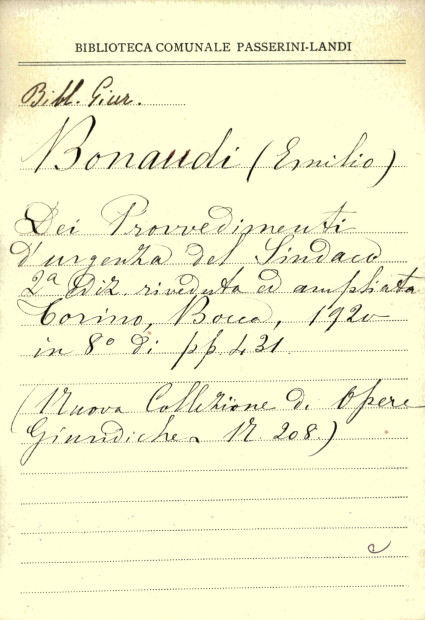 BIBLIOTECA COMUNALE PASSERINI-LANDI
Bibl. Giur.
Bonaudi (Emilio)
Dei Provvedimenti
d'urgenza del Sindaco
2ª Ediz. riveduta ed ampliata
Torino, Bocca, 1920
in 8° di pp. 431.
(Nuova Collezione di Opere
Giuridiche N. 208.)
c